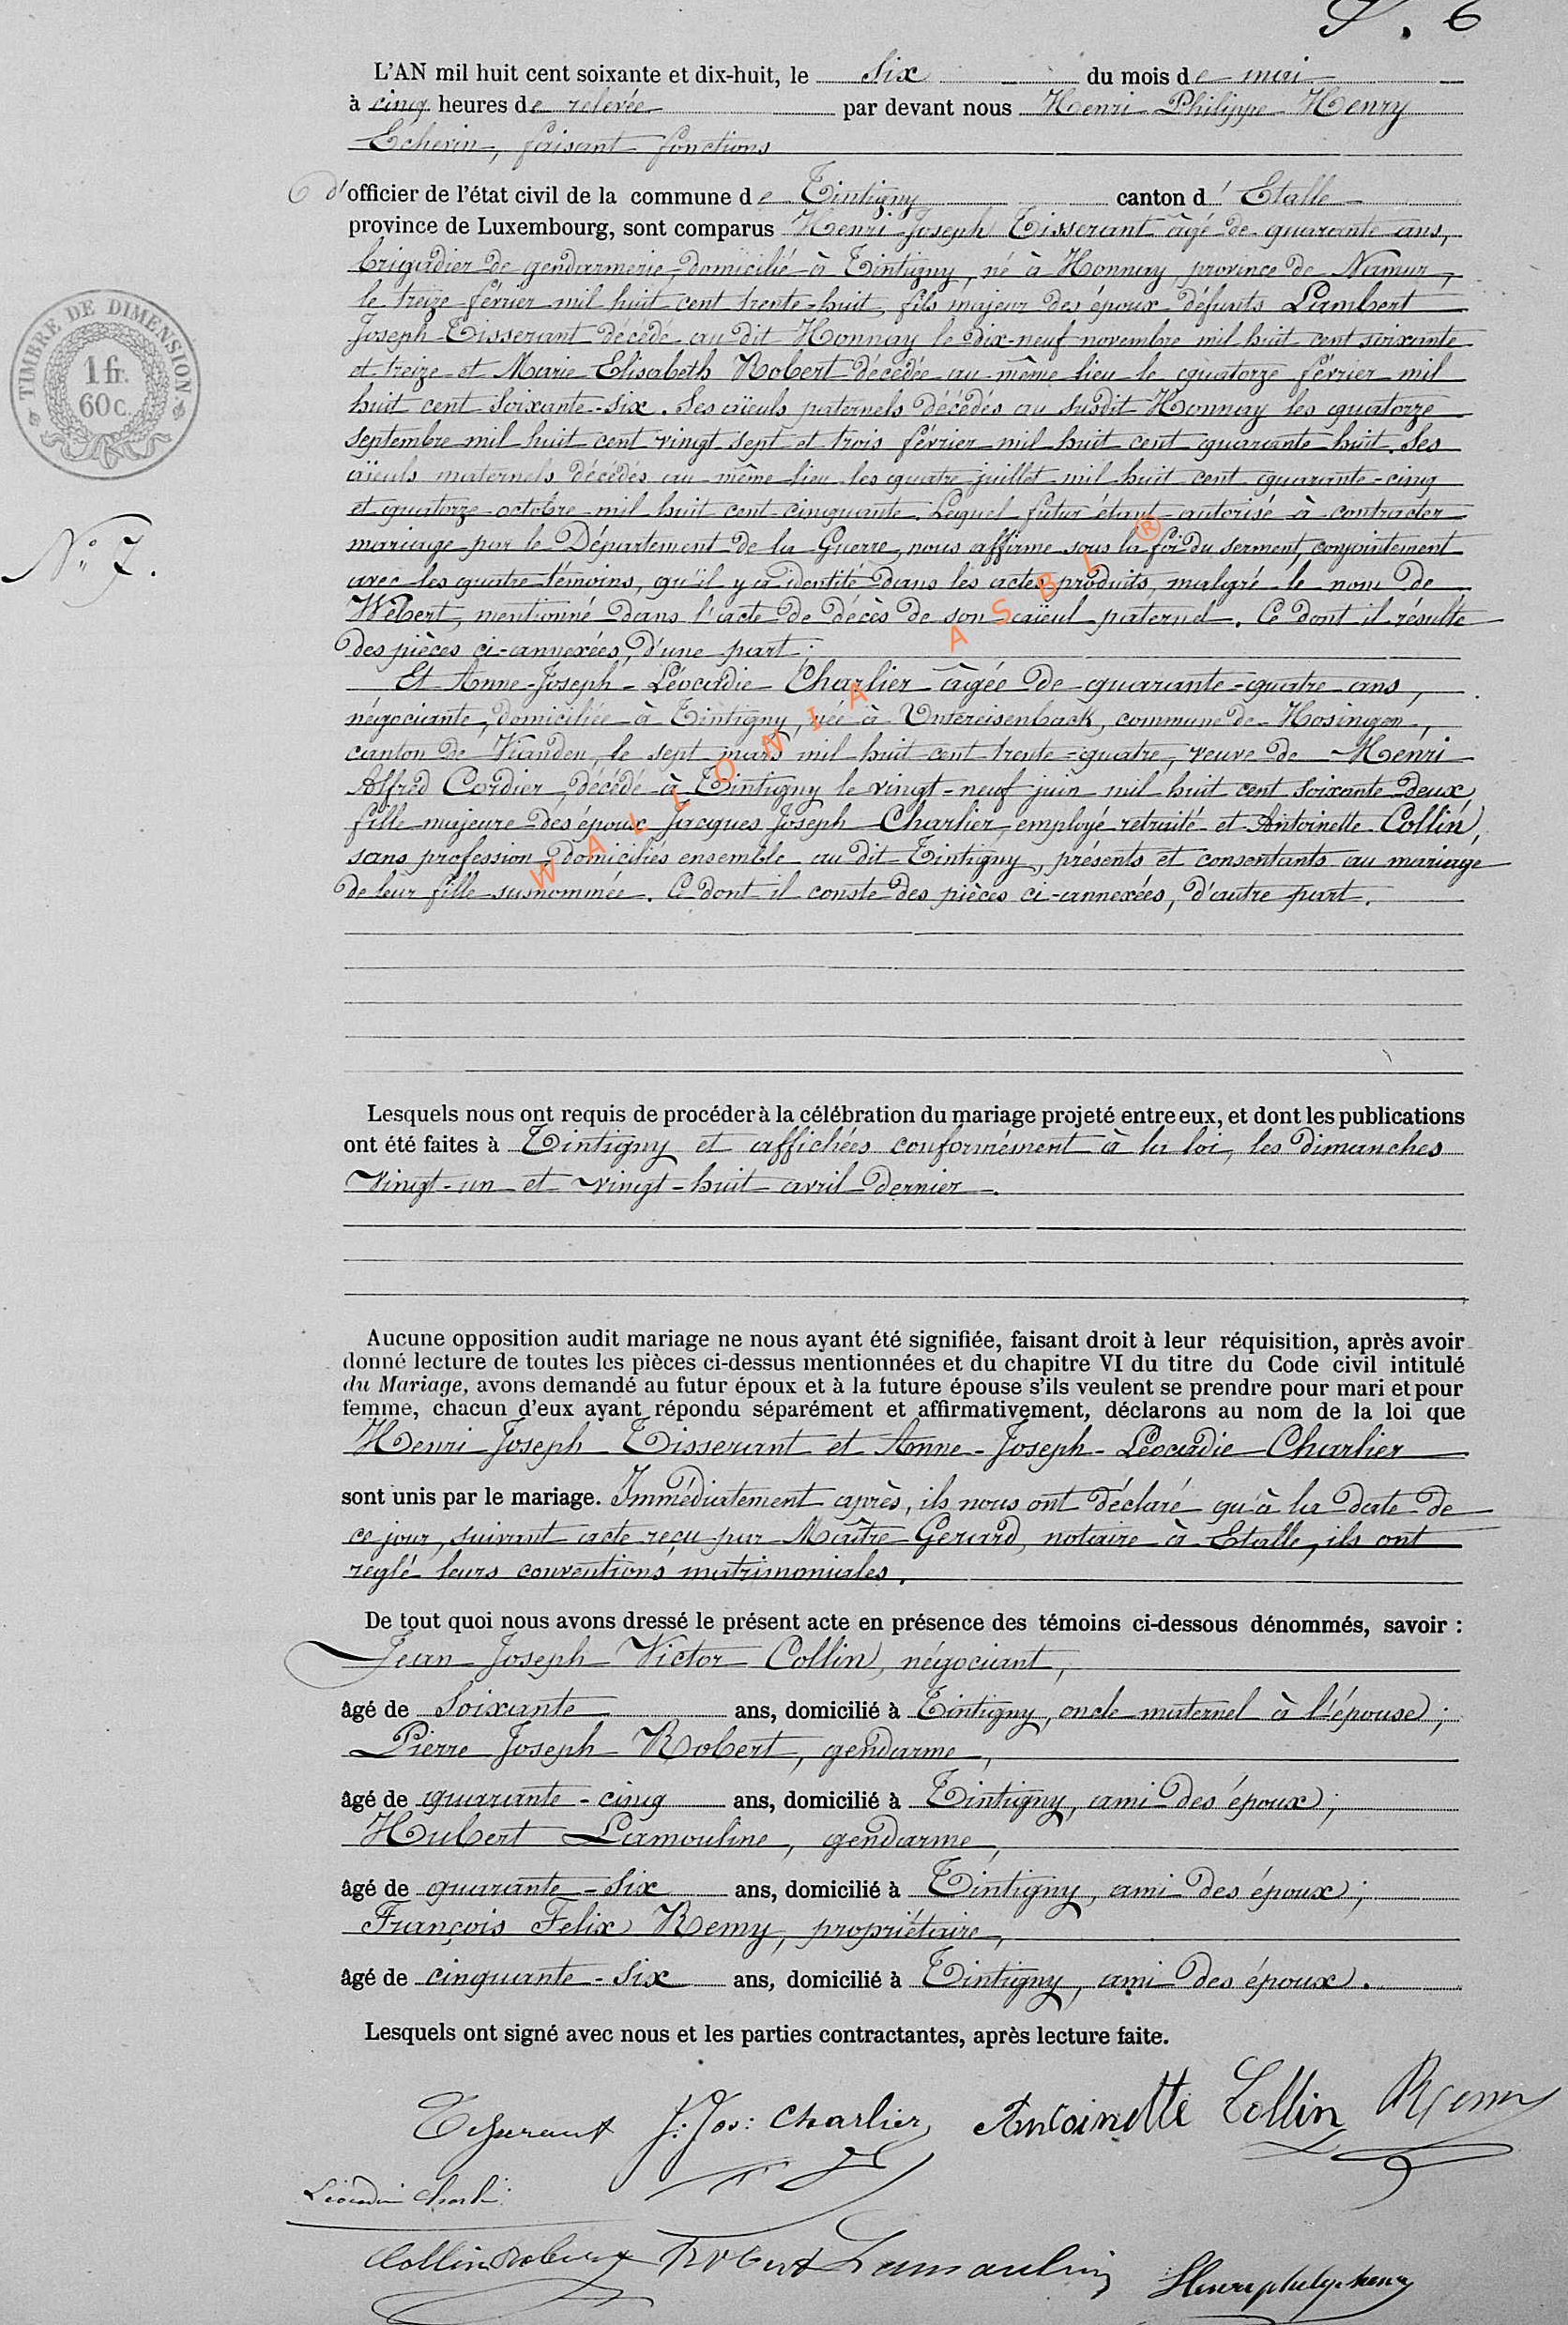 6
L'AN mil huit cent soixante et dix-huit, le Six du mois de mai
à cinq heures de relevée par devant nous Henri Philippe Henry
Echevin, faisant fonctions
d'officier de l'état civil de la commune de Tintigny canton d'Etalle
province de Luxembourg, sont comparus Henri Joseph Tisserant âgé de quarante ans,
brigadier de gendarmerie, domicilié à Tintigny, né à Honnay, province de Namur,
le treize février mil huit cent trente-huit, fils majeur des époux défunts Lambert
Joseph Tisserant décédé au dit Honnay le dix-neuf novembre mil huit cent soixante
TIMBRE DE DIMENSION
1 fr.
60 c.
et treize et Marie Elisabeth Robert décédée au même lieu le quatorze février mil
huit cent soixante-six. Ses aïeuls paternels décédés au susdit Honnay les quatorze
septembre mil huit cent vingt sept et trois février mil huit cent quarante huit. Ses
aïeuls maternels décédés au même lieu les quatre juillet mil huit cent quarante-cinq
et quatorze octobre mil huit cent cinquante. Lequel futur étant autorisé à contracter
N° 7.
mariage par le Département de la Guerre, nous affirme sous la foi du serment, conjointement
avec les quatre témoins, qu'il y a identité dans les actes produits, malgré le nom de
Wébert, mentionné dans l'acte de décès de son aïeul paternel. Ce dont il résulte
des pièces ci-annexées, d'une part;
Et Anne-Joseph-Léocadie Charlier âgée de quarante-quatre ans,
négociante, domiciliée à Tintigny, née à Untereisenback, commune de Hosingen,
canton de Vianden, le sept mars mil huit cent trente-quatre, veuve de Henri
Alfred Cordier, décédé à Tintigny le vingt-neuf juin mil huit cent soixante deux,
fille majeure des époux Jacques Joseph Charlier, employé retraité et Antoinette Collin,
sans profession, domiciliés ensemble au dit Tintigny, présents et consentants au mariage
de leur fille susnommée. Ce dont il conste des pièces ci-annexées, d'autre part.
WALLONIA ASBL ®
Lesquels nous ont requis de procéder à la célébration du mariage projeté entre eux, et dont les publications
ont été faites à Tintigny et affichées conformément à la loi, les dimanches
vingt-un et vingt-huit avril dernier.
Aucune opposition audit mariage ne nous ayant été signifiée, faisant droit à leur réquisition, après avoir
donné lecture de toutes les pièces ci-dessus mentionnées et du chapitre VI du titre du Code civil intitulé
du Mariage, avons demandé au futur époux et à la future épouse s'ils veulent se prendre pour mari et pour
femme, chacun d'eux ayant répondu séparément et affirmativement, déclarons au nom de la loi que
Henri Joseph Tisserant et Anne-Joseph-Léocadie Charlier
sont unis par le mariage. Immédiatement après, ils nous ont déclaré qu'à la date de
ce jour, suivant acte reçu par Maître Gerard, notaire à Etalle, ils ont
reglé leurs conventions matrimoniales.
De tout quoi nous avons dressé le présent acte en présence des témoins ci-dessous dénommés, savoir :
Jean Joseph Victor Collin, négociant,
âgé de Soixante ans, domicilié à Tintigny, oncle maternel à l'épouse;
Pierre Joseph Robert, gendarme,
âgé de quarante-cinq ans, domicilié à Tintigny, ami des époux;
Hubert Lamouline, gendarme,
âgé de quarante-six ans, domicilié à Tintigny, ami des époux;
François Felix Remy, propriétaire,
âgé de cinquante-six ans, domicilié à Tintigny, ami des époux.
Lesquels ont signé avec nous et les parties contractantes, après lecture faite.
Tisserant J. Jos: Charlier Antoinette Collin Remy
Léocadie Charlier
Collin Robert Lamouline